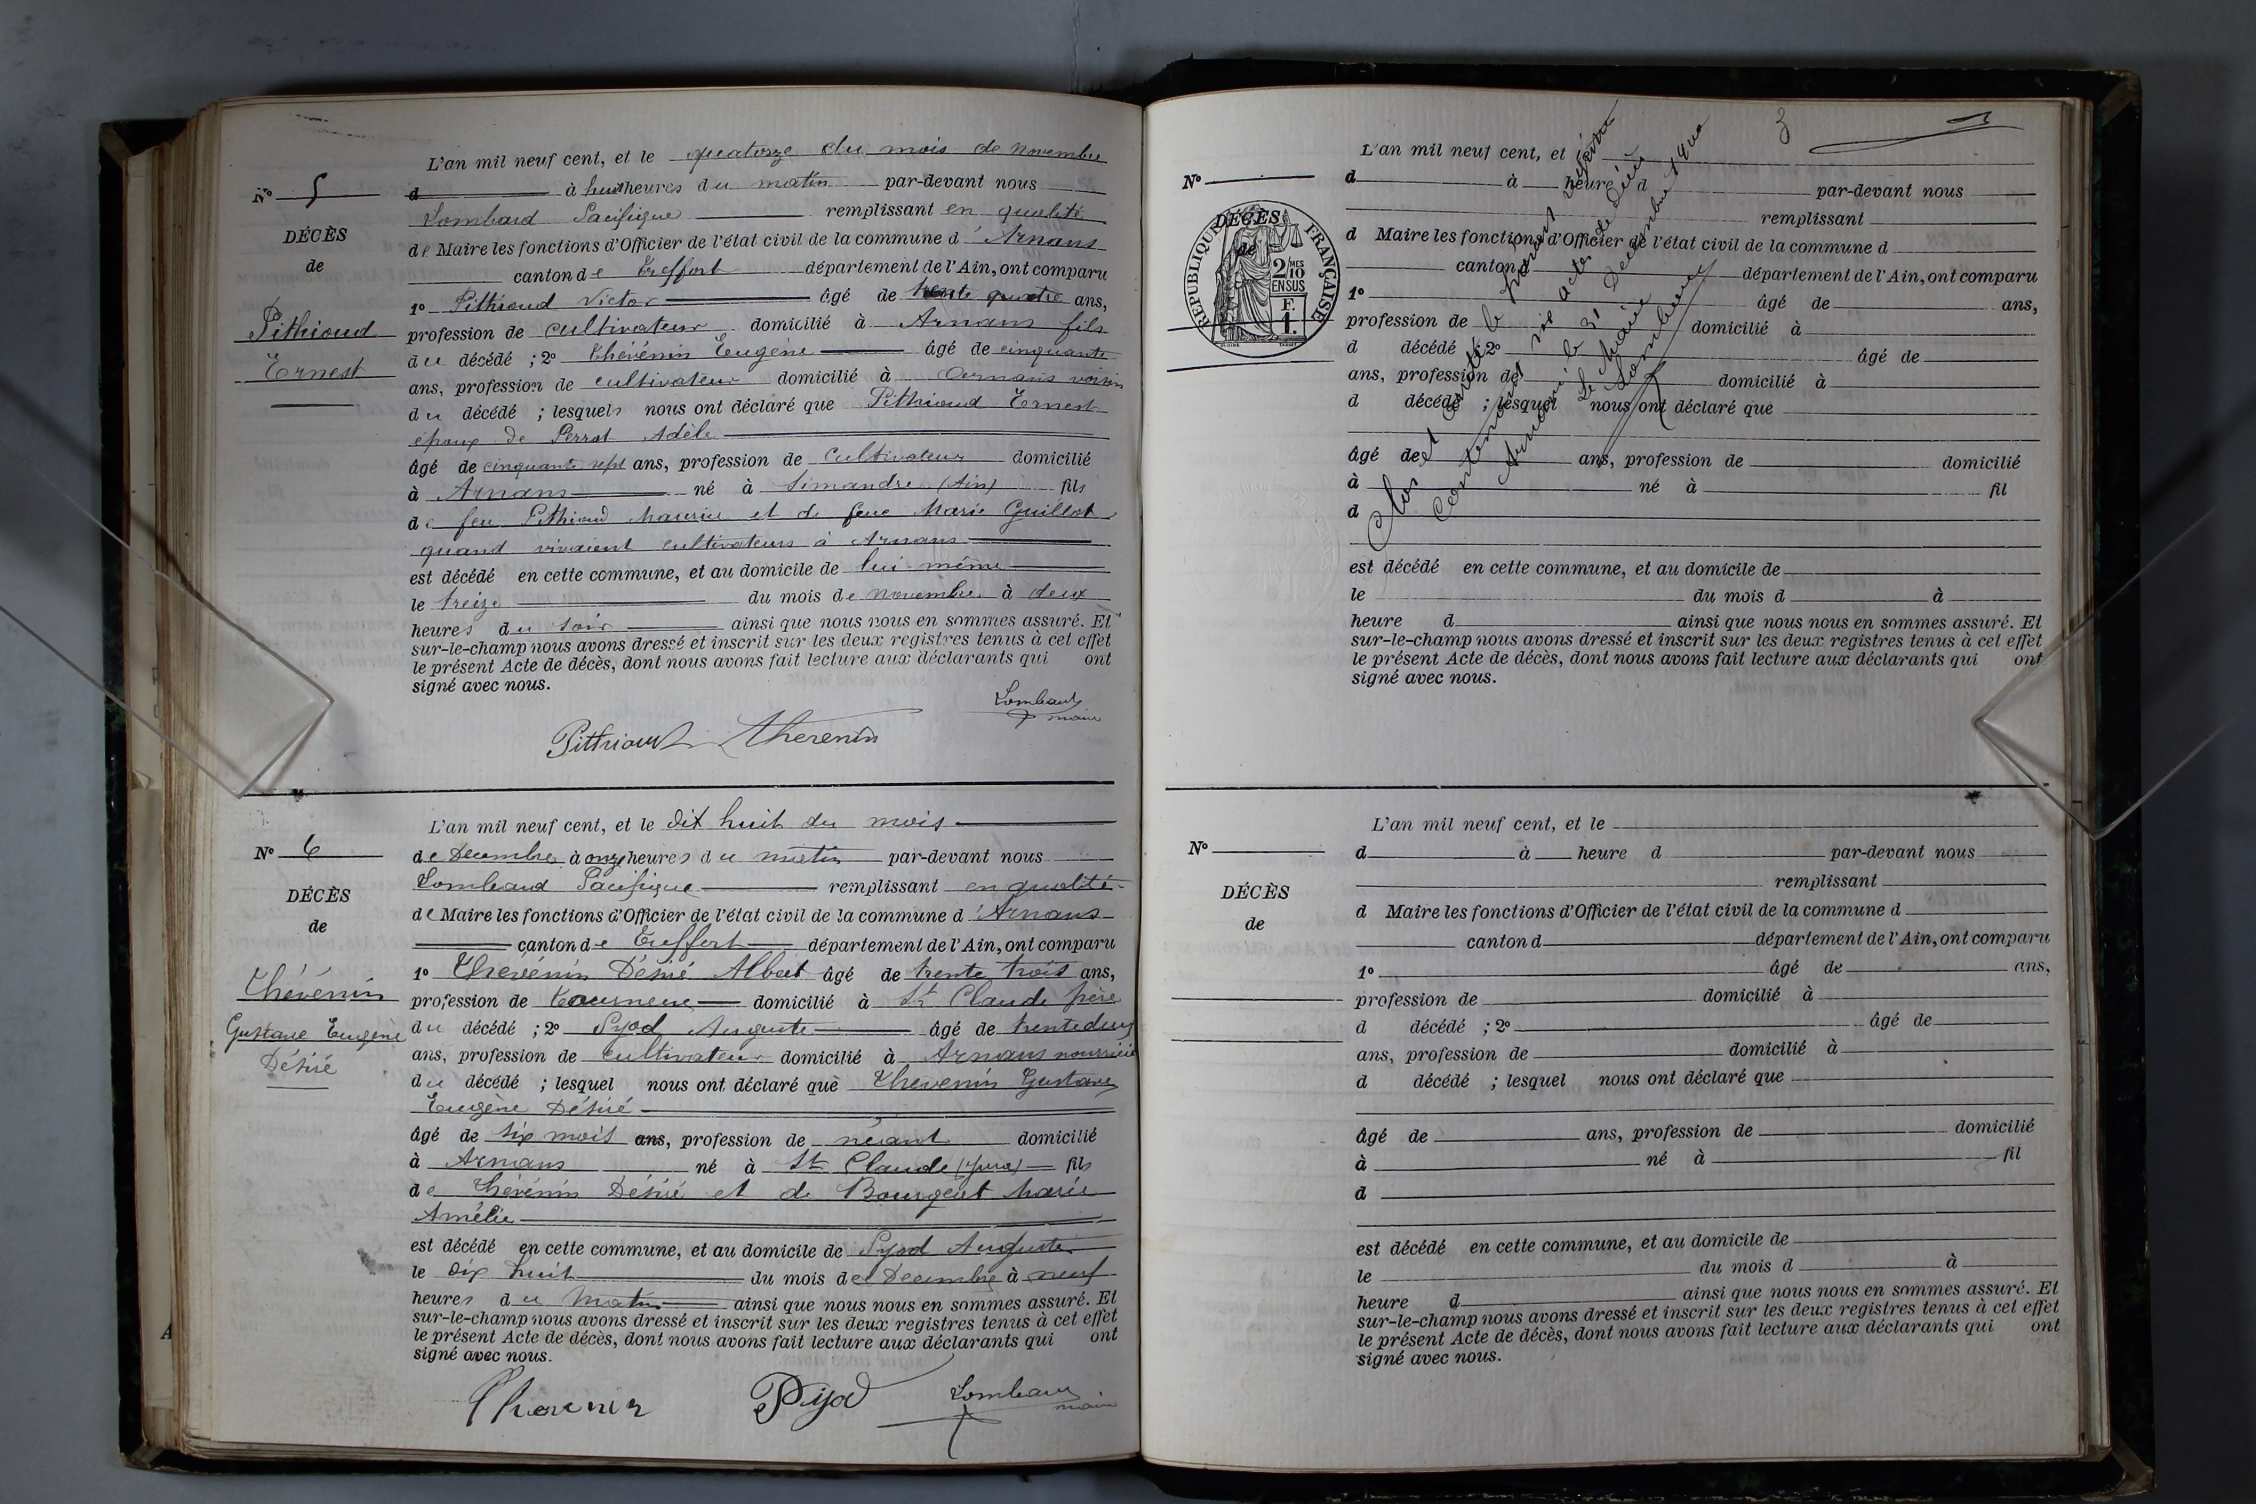 L'an mil neuf cent, et le quatorze du mois de novembre
d à huit heures du matin par-devant nous
Lombard Pacifique remplissant en qualité
de Maire les fonctions d'Officier de l'état civil de la commune d'Arnans
canton de Treffort département de l'Ain, ont comparu
1º Pithioud Victor âgé de trente quatre ans,
profession de cultivateur domicilié à Arnans fils
du décédé ; 2º Thévénin Eugène âgé de cinquante
ans, profession de cultivateur domicilié à Arnans voisin
du décédé ; lesquels nous ont déclaré que Pithioud Ernest
époux de Perrot Adèle
âgé de cinquante sept ans, profession de cultivateur domicilié
à Arnans né à Simandre (Ain) fils
de feu Pithioud Maurice et de feue Marie Guillot
quand vivaient cultivateurs à Arnans
est décédé en cette commune, et au domicile de lui-même
le treize du mois de novembre à deux
heures du soir ainsi que nous nous en sommes assuré. Et
sur-le-champ nous avons dressé et inscrit sur les deux registres tenus à cet effet
le présent Acte de décès, dont nous avons fait lecture aux déclarants qui ont
signé avec nous.
Pithioud Thevenin Lombard
maire
Nº 5
DÉCÈS
de
Pithioud
Ernest
L'an mil neuf cent, et le dix huit du mois
de Decembre à onze heures du matin par-devant nous
Lombard Pacifique remplissant en qualité
de Maire les fonctions d'Officier de l'état civil de la commune d'Arnans
canton de Treffort département de l'Ain, ont comparu
1º Thévénin Désiré Albert âgé de trente trois ans,
profession de tourneur domicilié à St Claude père
du décédé ; 2º Pyod Auguste âgé de trente deux
ans, profession de cultivateur domicilié à Arnans nourricier
du décédé ; lesquel nous ont déclaré que Thevenin Gustave
Eugène Désiré
âgé de six mois ans, profession de néant domicilié
à Arnans né à St Claude (Jura) fils
de Thévénin Désiré et de Bourgeat Marie
Amélie
est décédé en cette commune, et au domicile de Pyod Auguste
le dix huit du mois de Decembre à neuf
heures du matin ainsi que nous nous en sommes assuré. Et
sur-le-champ nous avons dressé et inscrit sur les deux registres tenus à cet effet
le présent Acte de décès, dont nous avons fait lecture aux déclarants qui ont
signé avec nous.
Thevenin Pyod Lombard
maire
Nº 6
DÉCÈS
de
Thévénin
Gustave Eugène
Désiré
3
L'an mil neuf cent, et
d à heure d par-devant nous
remplissant
d Maire les fonctions d'Officier de l'état civil de la commune d
canton d département de l'Ain, ont comparu
1º âgé de ans,
profession de domicilié à
d décédé ; 2º âgé de
ans, profession de domicilié à
d décédé ; lesquel nous ont déclaré que
âgé de ans, profession de domicilié
à né à fil
d
est décédé en cette commune, et au domicile de
le du mois d à
heure d ainsi que nous nous en sommes assuré. Et
sur-le-champ nous avons dressé et inscrit sur les deux registres tenus à cet effet
le présent Acte de décès, dont nous avons fait lecture aux déclarants qui ont
signé avec nous.
Clos et arrêté le présent registre
contenant six actes de décès
Arnans le 31 Decembre 1900
Le Maire
Lombard
Nº
DÉCÈS
de
RÉPUBLIQUE FRANÇAISE
2/MES
10
EN SUS
F.
1.
L'an mil neuf cent, et le
d à heure d par-devant nous
remplissant
d Maire les fonctions d'Officier de l'état civil de la commune d
canton d département de l'Ain, ont comparu
1º âgé de ans,
profession de domicilié à
d décédé ; 2º âgé de
ans, profession de domicilié à
d décédé ; lesquel nous ont déclaré que
âgé de ans, profession de domicilié
à né à fil
d
est décédé en cette commune, et au domicile de
le du mois d à
heure d ainsi que nous nous en sommes assuré. Et
sur-le-champ nous avons dressé et inscrit sur les deux registres tenus à cet effet
le présent Acte de décès, dont nous avons fait lecture aux déclarants qui ont
signé avec nous.
Nº
DÉCÈS
de